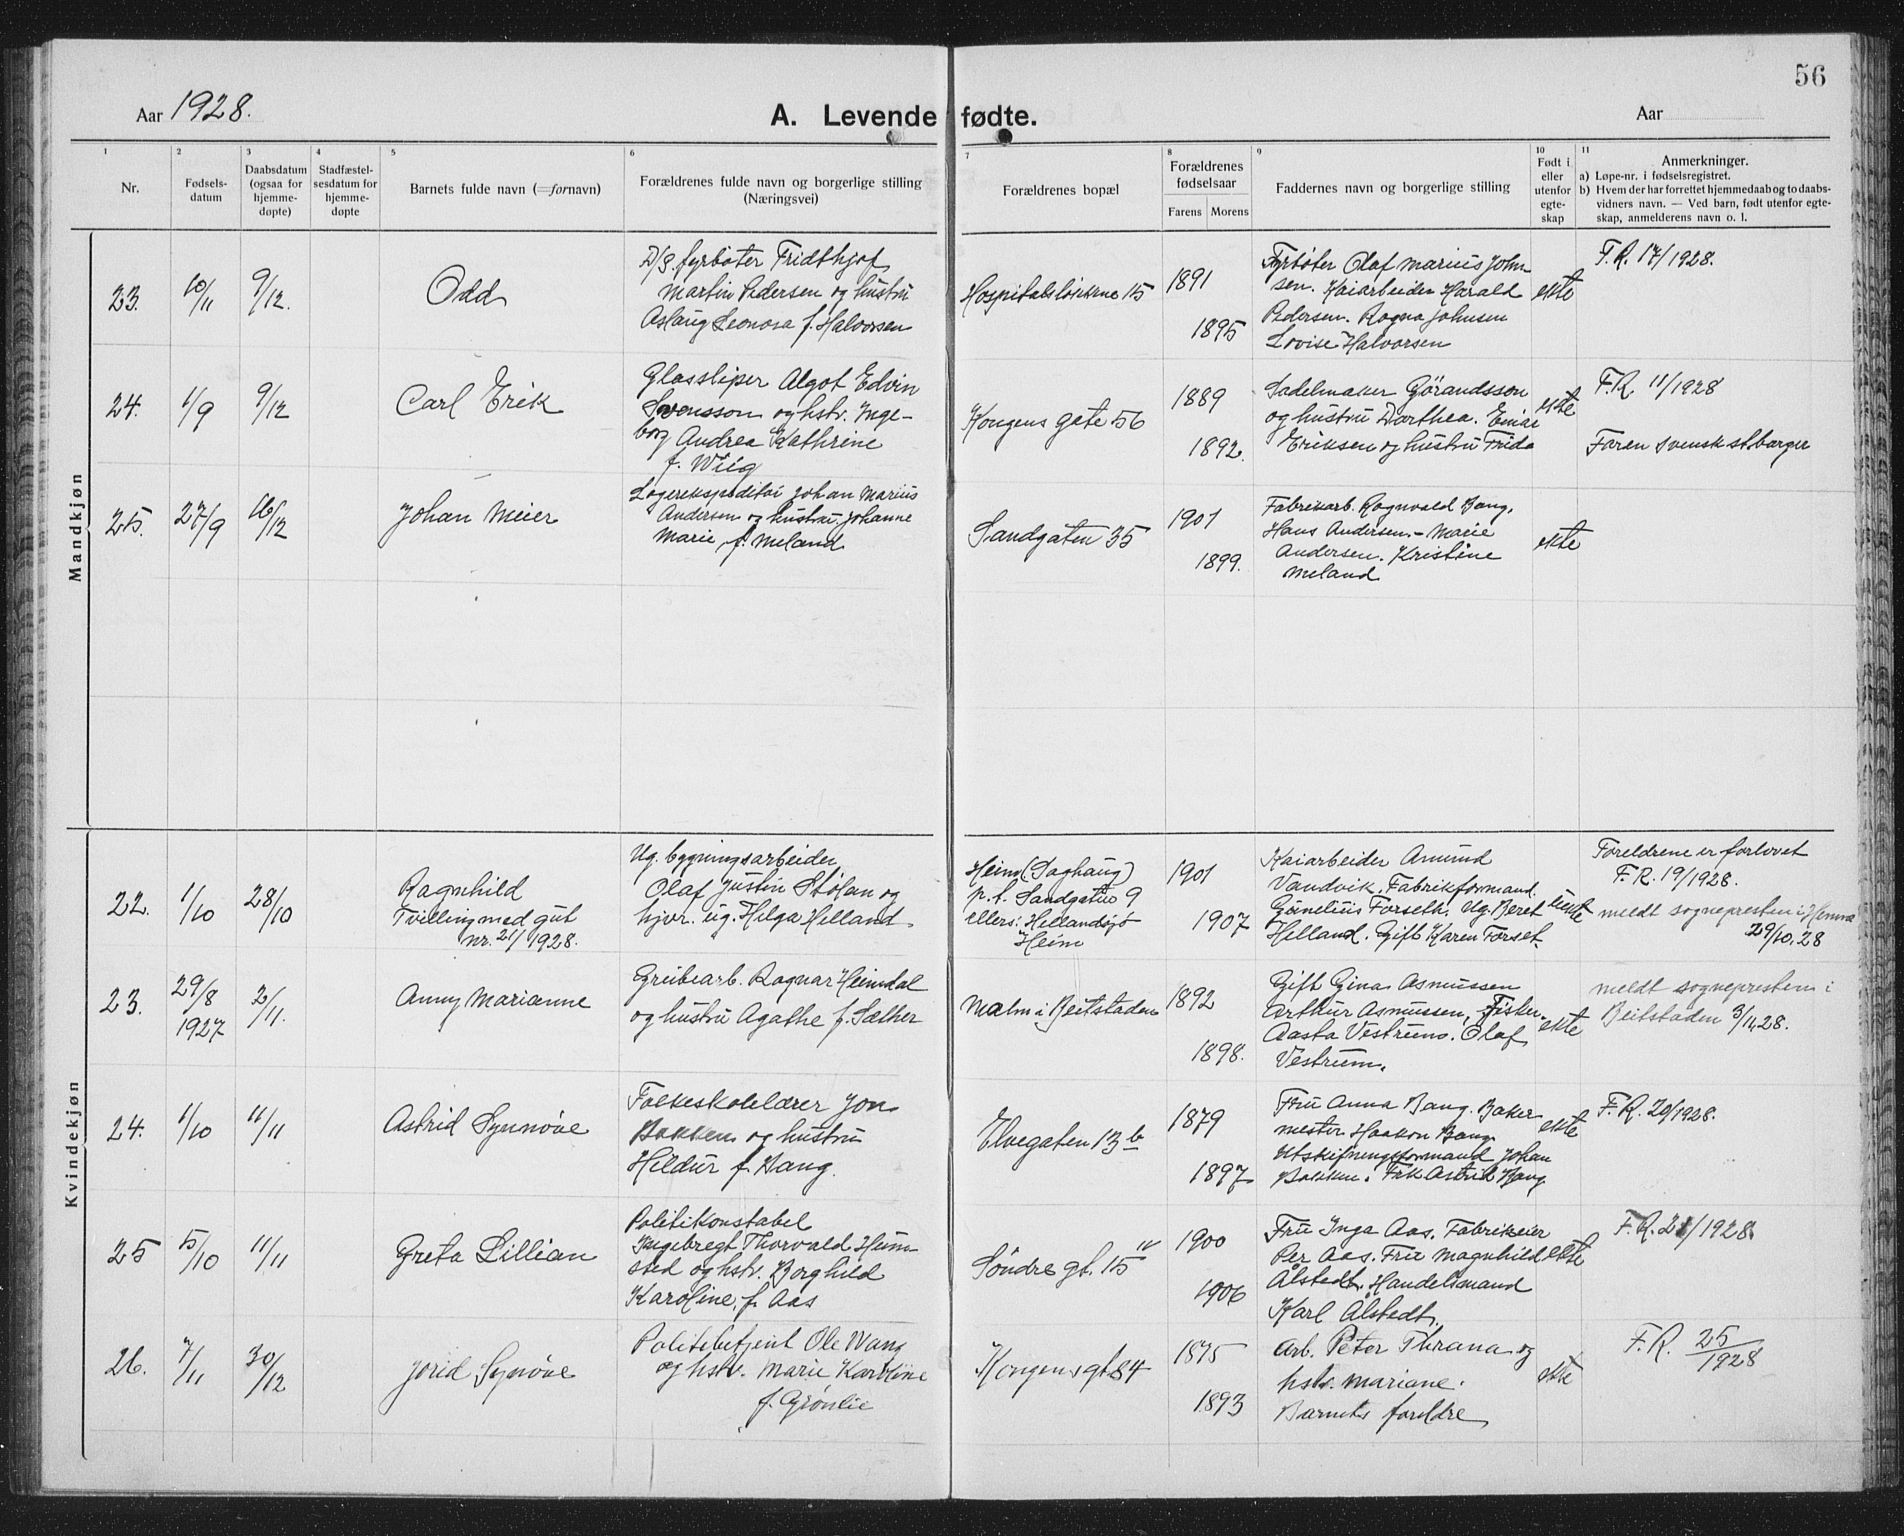 56
Aar 1928.
A. Levende fødte.
Aar
1
2
3
4
5
6
7
8
9
10
11
Nr.
Fødsels-
datum
Daabsdatum
(ogsaa for
hjemme-
døpte)
Stadfæstel-
sesdatum for
hjemme-
døpte
Barnets fulde navn (=fornavn)
Forældrenes fulde navn og borgerlige stilling
(Næringsvei)
Forældrenes bopæl
Forældrenes
fødselsaar
Farens Morens
Faddernes navn og borgerlige stilling
Født i
eller
utenfor
egte-
skap
Anmerkninger.
a) Løpe-nr. i fødselsregistret.
b) Hvem der har forrettet hjemmedaab og to daabs-
vidners navn. — Ved barn, født utenfor egte-
skap, anmelderens navn o. l.
Mandkjøn
23.
10/11
9/12.
Odd
D/S. fyrbøter Fridthjof
Martin Pedersen og hustru
Aslaug Leonora f. Halvorsen
Hospitalsløkkene 15
1891
1895
Fyrbøter Olaf Marius John-
sen. Kaiarbeider Harald
Pedersen. Ragna Johnsen
Lovise Halvorsen
ekte
F.R. 17/1928.
24.
1/9
9/12
Carl Erik
Glassliper Algot Edvin
Svensson og hstr. Inge-
borg Andrea Kathrine
f. Wiig
Kongens gate 56
1889
1892.
Sadelmaker Görandsson
og hustru Dorthea. Einar
Eriksen og hustru Frida
ekte
F.R. 11/1928
Faren svensk st.borger
25.
27/9
16/12
Johan Meier
Lagerekspeditør Johan Marius
Andersen og hustru Johanne
Marie f. Meland
Sandgaten 35
1901
1899.
Fabrikarb. Ragnvald Bang.
Hans Andersen. - Marie
Andersen. Kristine
Meland
ekte
Kvindekjøn
22.
1/10
28/10
Ragnhild
Tvilling med gut
nr. 21/1928.
Ug. bygningsarbeider
Olaf Justin Stølan og
hjvr. ug. Helga Helland
Heim (Saghaug)
p.t. Sandgaten 9
ellers: Hellandsjø
Heim
1901
1907
Kaiarbeider Amund
Vandvik. Fabrikformand
Gunelius Forseth. Ug. Beret
Helland. Gift Karen Forset
uekte
Foreldrene er forlovet
F.R. 19/1928.
meldt sognepresten i Hemne
29/10.28
23.
29/8
1927
2/11.
Anny Marianne
Grubearb. Ragnar Heimdal
og hustru Agathe f. Sæther
Malm i Beitstaden
1892
1898.
Gift Gina Asmussen
Arthur Asmussen, Fisker.
Aasta Vestrum. Olaf
Vestrum.
ekte
meldt sognepresten i
Beitstaden 3/11.28.
24.
1/10
11/11
Astrid Synnøve
Folkeskolelærer Jon
Bakken og hustru
Hildur f. Bang.
Elvegaten 13 b
1879
1897
Fru Anna Bang. Baker
mester Haakon Bang.
Utskiftningsformand Johan
Bakken. Frk Astrid Bang
ekte
F.R. 20/1928.
25
5/10
11/11
Greta Lillian
Politikonstabel
Ingebregt Thorvald Hum-
sted og hstr. Borghild
Karoline, f. Aas
Søndre gt. 15 IV
1900
1906
Fru Inga Aas. Fabrikeier
Per Aas. Fru Magnhild
Ålstedt. Handelsmand
Karl Ålstedt.
ekte
F.R. 21/1928.
26.
7/11
30/12
Jorid Synøve
Politibetjent Ole Wang
og hstr. Marie Karoline
f. Grønlie
Kongens gt 84
1875
1893
Arb. Peter Thrana og
hstr. Mariane.
Barnets foreldre
ekte
F.R. 25/1928